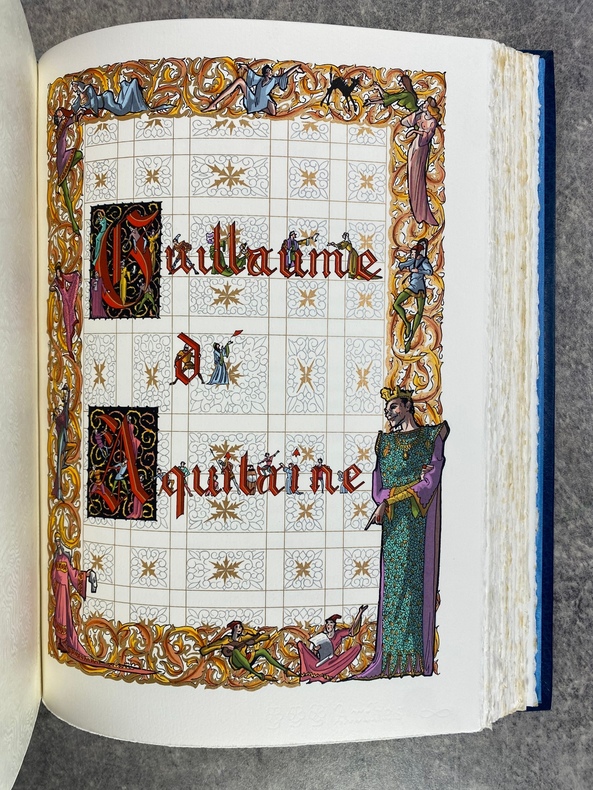 Guillaume
d
Aquitaine